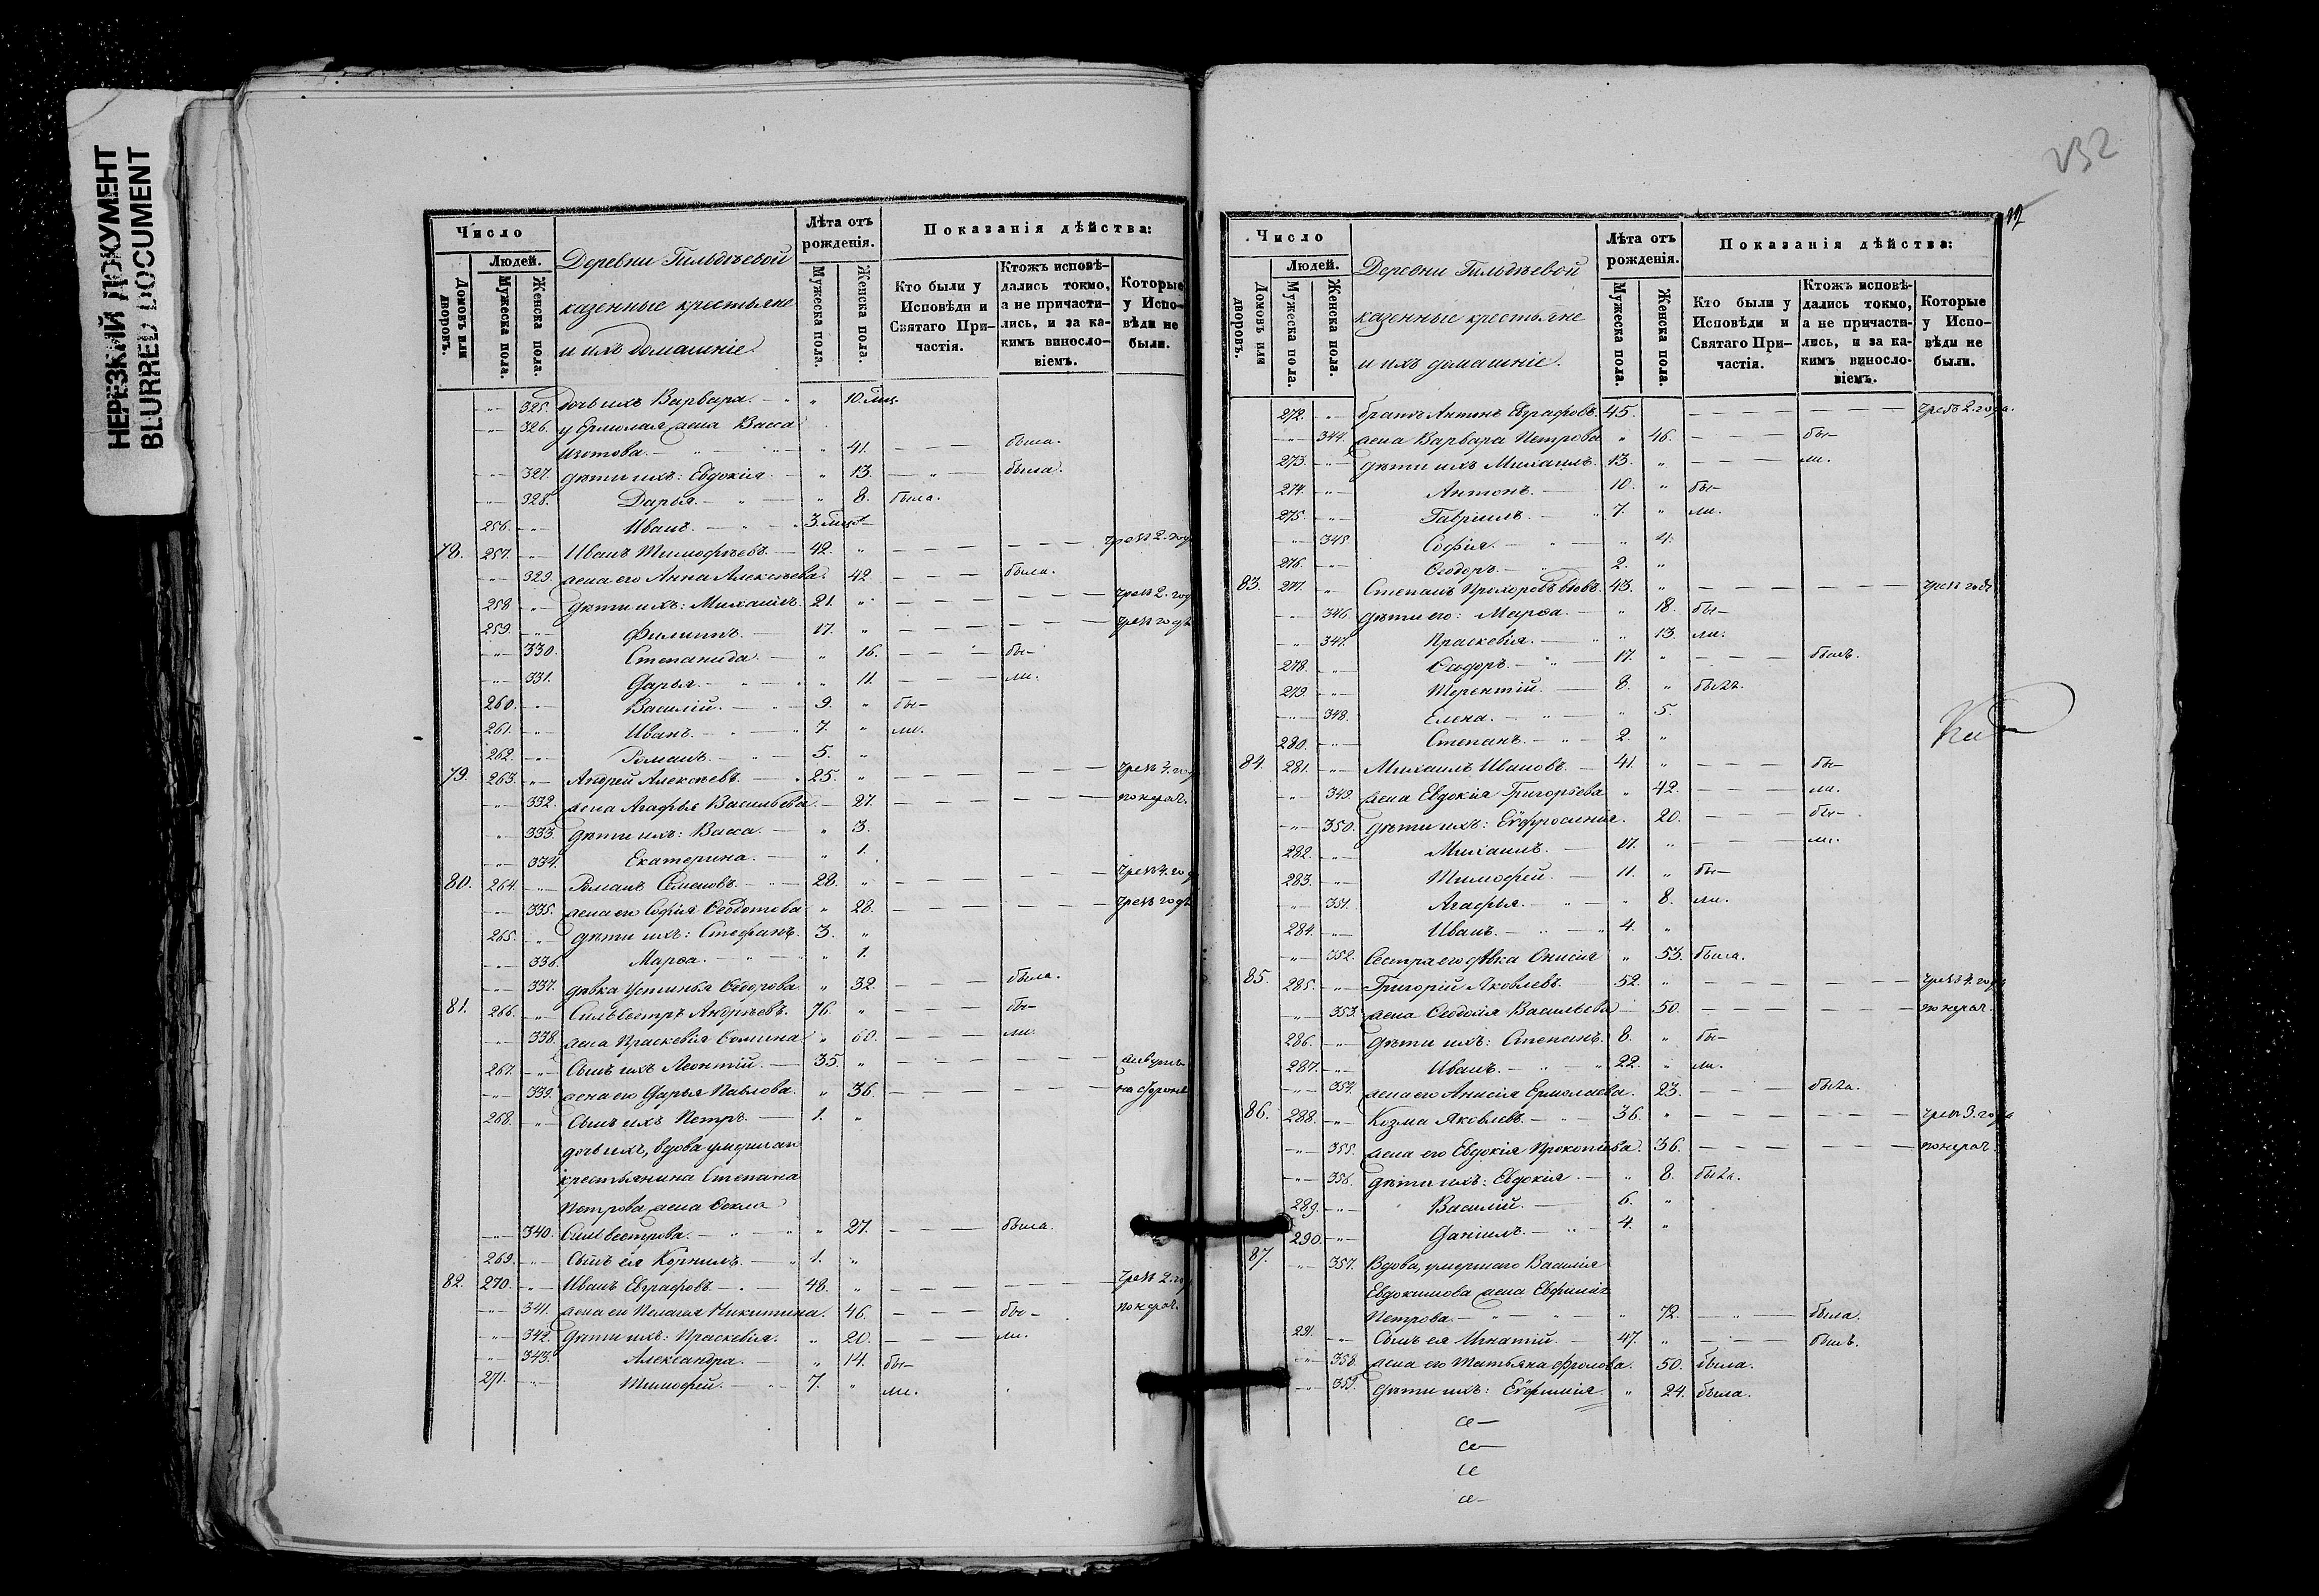 НЕРЕЗКИЙ ДОКУМЕНТ
BLURRED DOCUMENT
Число
Людей.
Домовъ или дворовъ.
Мужеска пола.
Женска пола.
Деревни Гильдѣевой
казенные крестьяне
и ихъ домашніе.
Лѣта отъ рожденія.
Мужеска пола.
Женска пола.
Показанія дѣйства:
Кто были у Исповѣди и Святаго При-частія.
Ктожъ исповѣ-дались токмо, а не причасти-лись, и за ка-кимъ виносло-віемъ.
Которые у Испо-вѣди не были.
325. дочь ихъ Варвара. 10. мѣс.
326. у Ермилая жена Васса
Изотова. 41. была.
327. дѣти ихъ: Евдокія. 13. была.
328. Дарья. 8. была.
256. Иванъ. 3.
78. 257. Иванъ Тимофѣевъ. 42. чрезъ 2. год
329. жена его Анна Алексѣева. 42. была.
258. дѣти ихъ: Михаилъ. 21. чрезъ 2. год
259. Филиппъ. 17. чрезъ годъ
330. Степанида. 16. бы-
331. Дарья. 11. ли.
260. Василій. 9. бы-
261. Иванъ. 7. ли.
262. Романъ. 5.
79. 263. Андрей Алексѣевъ. 25. чрезъ 4. год
332. жена Агафья Васильева. 27. по нерач.
333. дѣти ихъ: Васса. 3.
334. Екатерина. 1.
80. 264. Романъ Семеновъ. 28. чрезъ 4. год
335. жена его Софія Ѳедотова. 28. чрезъ годъ
265. дѣти ихъ: Стефанъ. 3.
336. Марѳа. 1.
337. дѣвка Устинья Ѳедорова. 32. была.
81. 266. Сильвестръ Андреевъ. 76. бы-
338. жена Праскевія Сомина 60. ли.
267. Сынъ ихъ Леонтій. 35.
339. жена его Дарья Павлова. 36.
268. Сынъ ихъ Петръ. 1.
дочь ихъ, вдова умершаго
крестьянина Степана
Петрова жена Ѳекла
340. Сильвестрова. 27. была.
269. Сынъ ея Корнилъ. 1.
82. 270. Иванъ Евграфовъ. 48. чрезъ 2. год
341. жена его Пелагея Никитина. 46. бы- по нерач.
342. дѣти ихъ: Праскевія. 20. ли.
343. Александра. 14. бы-
271. Тимофей. 7. ли.
232
Число
Людей.
Домовъ или дворовъ.
Мужеска пола.
Женска пола.
Деревни Гильдѣевой
казенные крестьяне
и ихъ домашніе.
Лѣта отъ рожденія.
Мужеска пола.
Женска пола.
Показанія дѣйства:
Кто были у Исповѣди и Святаго При-частія.
Ктожъ исповѣ-дались токмо, а не причасти-лись, и за ка-кимъ виносло-віемъ.
Которые у Испо-вѣди не были.
272. братъ Антонъ Евграфовъ. 45. чрезъ 2. года.
344. жена Варвара Петрова 46. бы-
273. дѣти ихъ Михаилъ. 13. ли.
274. Антонъ. 10. бы-
275. Гавріилъ. 7. ли.
345. Софія. 4.
276. Ѳеодоръ. 2.
83. 277. Степанъ Прохоровъ вдовъ. 43. чрезъ годъ
346. дѣти его: Марѳа. 18. бы-
347. Праскевія. 13. ли.
278. Сидоръ. 17. былъ.
279. Терентій. 8. былъ.
348. Елена. 5.
280. Степанъ. 2.
84. 281. Михаилъ Ивановъ. 41. бы-
349. жена Евдокія Григорьева 42. ли.
350. дѣти ихъ: Евфросинія. 20. бы-
282. Михаилъ. 17. ли.
283. Тимофей. 11. бы-
351. Агафья. 8. ли.
284. Иванъ. 4.
352. Сестра его дѣвка Онисія 53. была.
85. 285. Григорій Яковлевъ. 52. чрезъ 4. года
353. жена Ѳеодосія Васильева 50. по нерач.
286. дѣти ихъ: Степанъ. 8. бы-
287. Иванъ. 22. ли.
354. жена его Анисія Ермолаева. 23. была.
86. 288. Козма Яковлевъ. 36. чрезъ 3. года
355. жена его Евдокія Прокопьева. 36. по нерач.
356. дѣти ихъ: Евдокія. 8. была.
289. Василій. 6.
290. Даніилъ. 4.
87. 357. Вдова, умершаго Василія
Евдокимова жена Евфимія
Петрова. 72. была.
291. Сынъ ея Игнатій. 47. былъ.
358. жена его Татьяна Фролова. 50. была.
359. дѣти ихъ: Евфимія. 24. была.